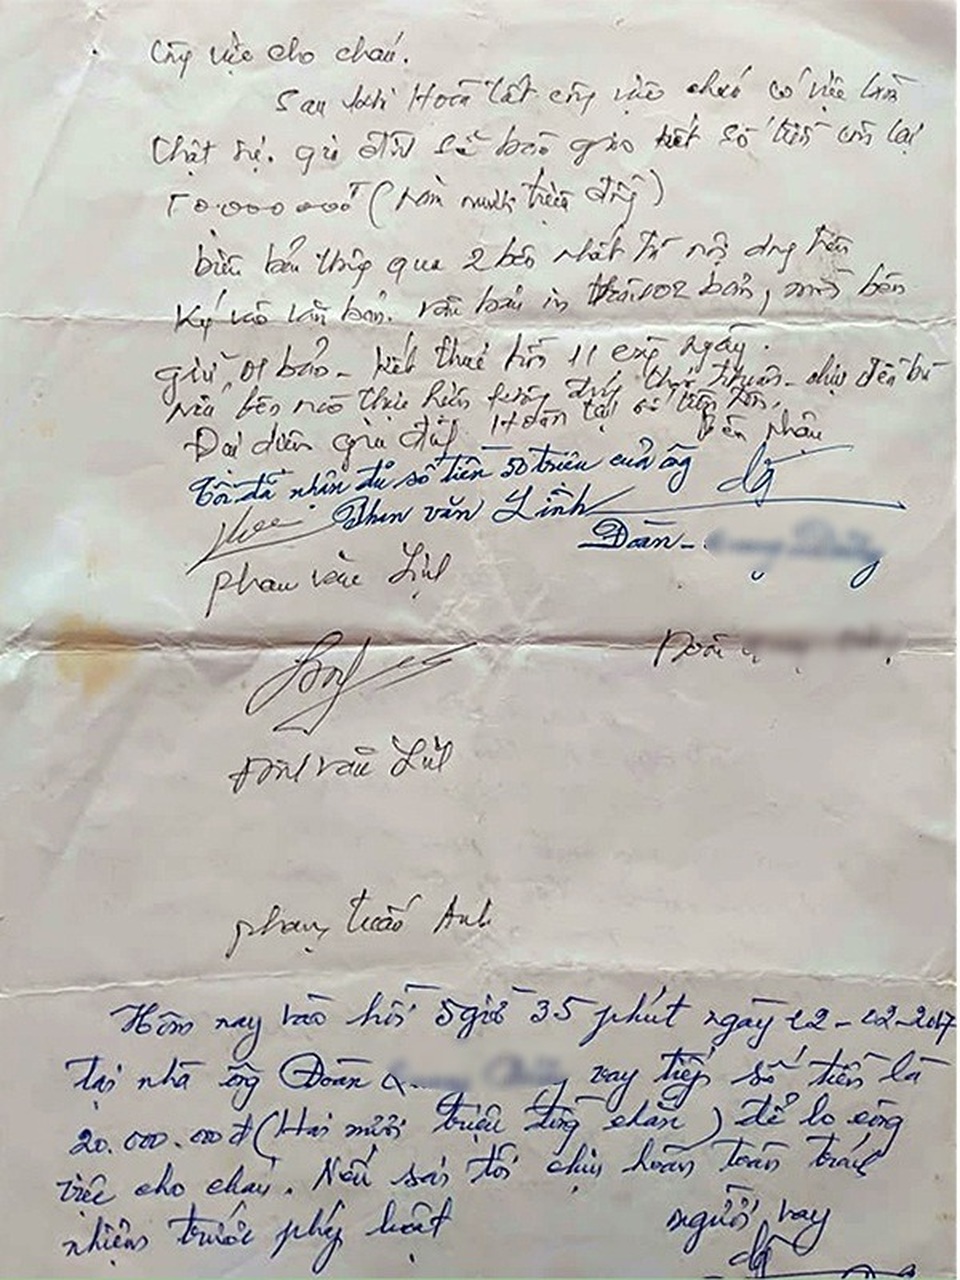 Công việc cho cháu.
Sau khi Hoàn tất công việc cháu có việc làm
thật sự. gia đình sẽ bàn giao hết số tiền còn lại
50.000.000đ (Năm mươi triệu đồng)
biên bản thông qua 2 bên nhất trí nội dung trên
Ký vào văn bản. văn bản in thành 02 bản, mỗi bên
giữ 01 bản - kết thúc hồi 11 cùng ngày.
Nếu bên nào thực hiện không đúng thỏa thuận - chịu đền bù
Hoàn lại số tiền trên.
Đại diện gia đình Bên nhận
Tôi đã nhận đủ số tiền 50 triệu của ông
Phan văn Lình
Đoàn
Phan văn Lình
Đoàn
Đinh văn Lình
phạm tuấn Anh
Hôm nay vào hồi 5 giờ 35 phút ngày 12-12-2017
tại nhà ông Đoàn vay tiếp số tiền là
20.000.000đ (Hai mươi triệu đồng chẵn) để lo công
việc cho cháu. Nếu sai tôi chịu hoàn toàn trách
nhiệm trước pháp luật
người vay